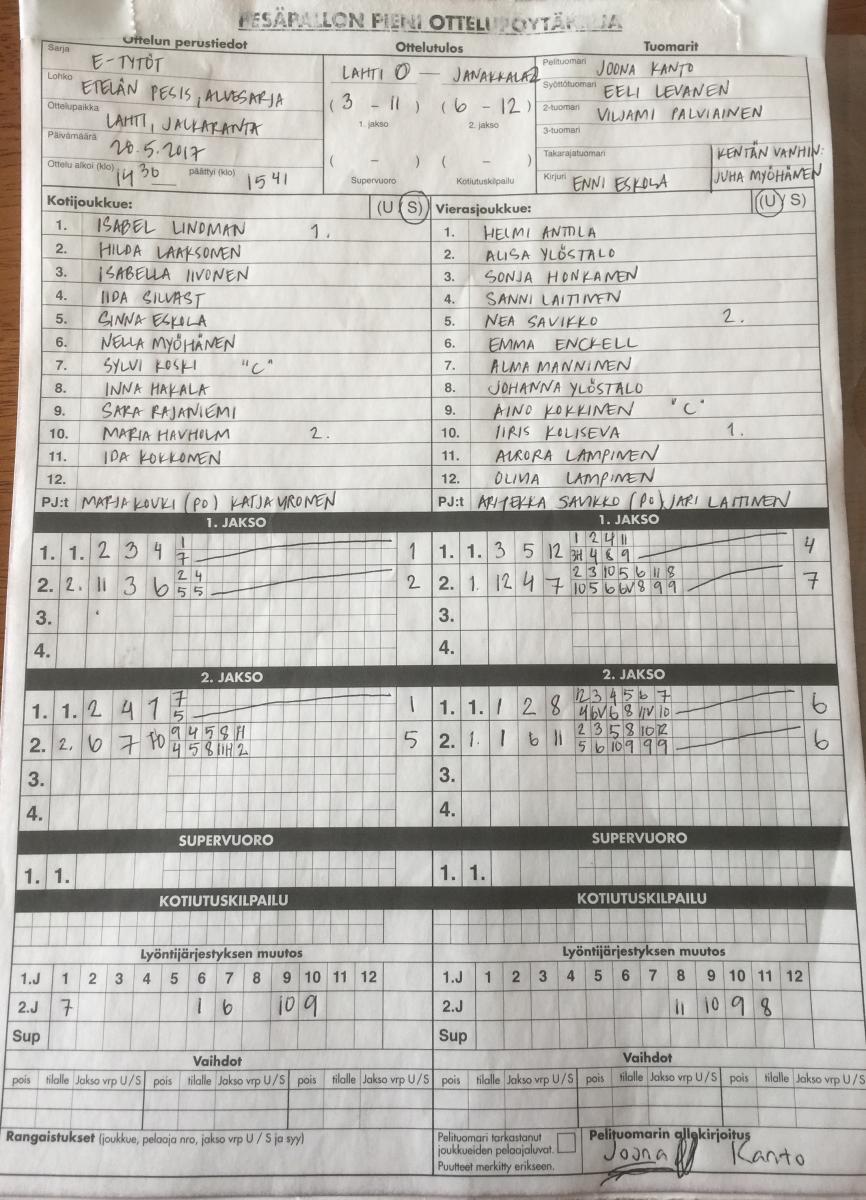 PESÄPALLON PIENI OTTELUPÖYTÄKIRJA
Ottelun perustiedot
Sarja E-TYTÖT
Lohko ETELÄN PESIS, ALUESARJA
Ottelupaikka LAHTI, JALKARANTA
Päivämäärä 20.5.2017
Ottelu alkoi (klo) 14 30 päättyi (klo) 15 41
Ottelutulos
LAHTI 0 — JANAKKALA 2
( 3 - 11 ) ( 6 - 12 )
1. jakso 2. jakso
( - ) ( - )
Supervuoro Kotiutuskilpailu
Tuomarit
Pelituomari JOONA KANTO
Syöttötuomari EELI LEVANEN
2-tuomari VILJAMI PALVIAINEN
3-tuomari
Takarajatuomari
Kirjuri ENNI ESKOLA
KENTÄN VANHIN:
JUHA MYÖHÄNEN
Kotijoukkue: (U S)
1. ISABEL LINDMAN 1.
2. HILDA LAAKSONEN
3. ISABELLA IIVONEN
4. IIDA SILVAST
5. SINNA ESKOLA
6. NELLA MYÖHÄNEN
7. SYLVI KOSKI "C"
8. INNA HAKALA
9. SARA RAJANIEMI
10. MARIA HAVHOLM 2.
11. IDA KOKKONEN
12.
PJ:t MARJA KOUKI (PO) KATJA VRONEN
Vierasjoukkue: (U S)
1. HELMI ANTTLA
2. ALISA YLÖSTALO
3. SONJA HONKANEN
4. SANNI LAITINEN
5. NEA SAVIKKO 2.
6. EMMA ENCKELL
7. ALMA MANNINEN
8. JOHANNA YLÖSTALO
9. AINO KOKKINEN "C"
10. IIRIS KOLISEVA 1.
11. AURORA LAMPINEN
12. OLIVIA LAMPINEN
PJ:t SAVIKKO (PO) JARI LAITINEN
1. JAKSO
1. 1. 2 3 4 1 1
7
2. 2. 11 3 6 2 4 2
5 5
3.
4.
1. JAKSO
1. 1. 3 5 12 1 2 4 11 4
3H 4 8 9
2. 1. 12 4 7 2 3 10 5 6 11 8 7
10 5 6 6V 8 9 9
3.
4.
2. JAKSO
1. 1. 2 4 1 7 1
5
2. 2. 6 7 10 9 4 5 8 11 5
4 5 8 11H 2
3.
4.
2. JAKSO
1. 1. 1 2 8 12 3 4 5 6 7 6
4 6V 6 8 11V 10
2. 1. 1 6 11 2 3 5 8 10 12 6
5 6 10 9 9 9
3.
4.
SUPERVUORO
1. 1.
SUPERVUORO
1. 1.
KOTIUTUSKILPAILU
KOTIUTUSKILPAILU
Lyöntijärjestyksen muutos
1.J 1 2 3 4 5 6 7 8 9 10 11 12
2.J 7 1 6 10 9
Sup
Lyöntijärjestyksen muutos
1.J 1 2 3 4 5 6 7 8 9 10 11 12
2.J 11 10 9 8
Sup
Vaihdot
pois tilalle Jakso vrp U/S pois tilalle Jakso vrp U/S pois tilalle Jakso vrp U/S
Vaihdot
pois tilalle Jakso vrp U/S pois tilalle Jakso vrp U/S pois tilalle Jakso vrp U/S
Rangaistukset (joukkue, pelaaja nro, jakso vrp U / S ja syy)
Pelituomari tarkastanut
joukkueiden pelaajaluvat.
Puutteet merkitty erikseen.
Pelituomarin allekirjoitus
Joona Kanto